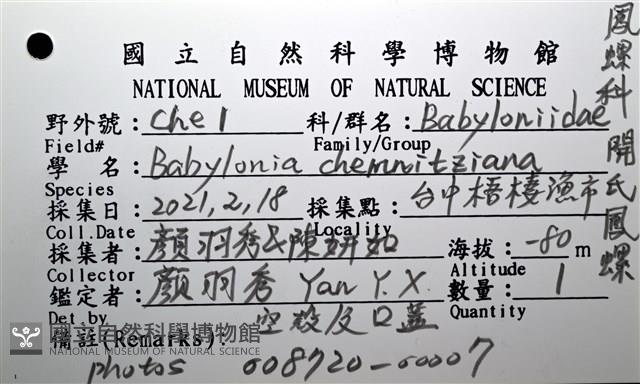 國立自然科學博物館
NATIONAL MUSEUM OF NATURAL SCIENCE
野外號：Che 1 科/群名：Babyloniidae
Field# Family/Group
學 名：Babylonia chemnitziana
Species
採集日：2021,2,18 採集點：台中梧棲漁市
Coll.Date Locality
採集者：顏羽秀&陳妍如 海拔：-80 m
Collector Altitude
鑑定者：顏羽秀 Yan Y.X. 數量：1
Det.by Quantity
空殼及口蓋
備註(Remarks)：
photos 008720-00007
鳳螺科 開氏鳳螺
國立自然科學博物館
NATIONAL MUSEUM OF NATURAL SCIENCE